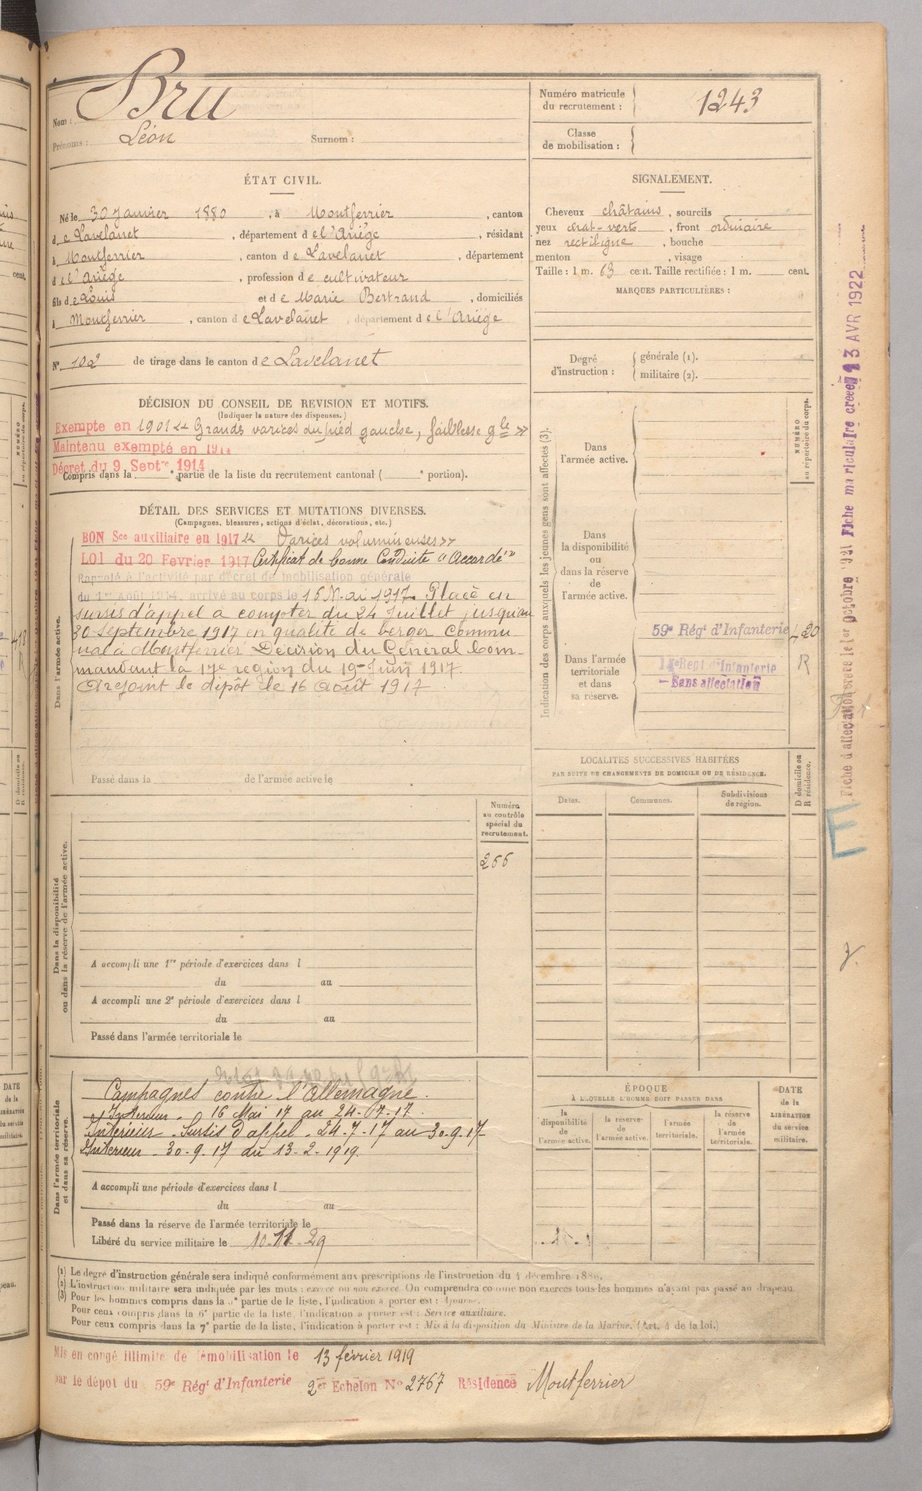 Nom : Bru
Prénoms : Léon Surnom :
Numéro matricule du recrutement : 1243
Classe de mobilisation :
ÉTAT CIVIL.
Né le 30 Janvier 1880, à Montferrier, canton
de Lavelanet, département de l'Ariège, résidant
à Montferrier, canton de Lavelanet, département
de l'Ariège, profession de cultivateur
fils de Louis et de Marie Bertrand, domiciliés
à Montferrier, canton de Lavelanet, département de l'Ariège
N° 102 de tirage dans le canton de Lavelanet
SIGNALEMENT.
Cheveux châtains, sourcils
yeux chat-verts, front ordinaire
nez rectiligne, bouche
menton , visage
Taille : 1 m. 63 cent. Taille rectifiée : 1 m. cent.
MARQUES PARTICULIÈRES :
Degré d'instruction : générale (1).
militaire (2).
DÉCISION DU CONSEIL DE REVISION ET MOTIFS.
(Indiquer la nature des dispenses.)
Exempté en 1901 « Grands varices du pied gauche, faiblesse gle »
Maintenu exempté en 1914
Décret du 9 Septre 1914
Compris dans la e partie de la liste du recrutement cantonal ( e portion).
DÉTAIL DES SERVICES ET MUTATIONS DIVERSES.
(Campagnes, blessures, actions d'éclat, décorations, etc.)
Dans l'armée active.
BON Sce auxiliaire en 1917 « Varices volumineuses »
LOI du 20 Fevrier 1917 Certificat de bonne Conduite "Accordé"
Rappelé à l'activité par décret de mobilisation générale
du 1er Août 1914, arrivé au corps le 16 Mai 1917. Placé en
sursis d'appel à compter du 24 Juillet jusqu'au
30 septembre 1917 en qualité de berger commu-
nal à Montferrier Décision du Général Com-
mandant la 17e région du 19 Juin 1917.
A rejoint le dépôt le 16 Août 1917
Passé dans la de l'armée active le
Indication des corps auxquels les jeunes gens sont affectés (3).
NUMÉRO au répertoire du corps.
Dans l'armée active.
Dans la disponibilité ou dans la réserve de l'armée active.
Dans l'armée territoriale et dans sa réserve.
59e Régt d'Infanterie
R
Sans affectation
LOCALITÉS SUCCESSIVES HABITÉES
PAR SUITE DE CHANGEMENTS DE DOMICILE OU DE RÉSIDENCE.
D domicile ou R résidence.
Dates. Communes. Subdivisions de région.
Numéro au contrôle spécial du recrutement.
266
Dans la disponibilité ou dans la réserve de l'armée active.
A accompli une 1re période d'exercices dans l
du au
A accompli une 2e période d'exercices dans l
du au
Passé dans l'armée territoriale le
Dans l'armée territoriale et dans sa réserve.
Campagnes contre l'Allemagne.
Intérieur - 16 Mai 17 au 24.07.17.
Intérieur Sursis d'appel - 24.7.17 au 30.9.17
Intérieur - 30.9.17 au 13.2.1919
A accompli une période d'exercices dans l
du au
Passé dans la réserve de l'armée territoriale le
Libéré du service militaire le 10.11.29
ÉPOQUE
À LAQUELLE L'HOMME DOIT PASSER DANS
la disponibilité de l'armée active. la réserve de l'armée active. l'armée territoriale. la réserve de l'armée territoriale.
DATE de la LIBÉRATION du service militaire.
(1) Le degré d'instruction générale sera indiqué conformément aux prescriptions de l'instruction du 4 décembre 1889.
(2) L'instruction militaire sera indiquée par les mots : exercé ou non exercé. On comprendra comme non exercés tous les hommes n'ayant pas passé au drapeau.
(3) Pour les hommes compris dans la e partie de la liste, l'indication à porter est : Ajourné.
Pour ceux compris dans la 6e partie de la liste, l'indication à porter est : Service auxiliaire.
Pour ceux compris dans la 7e partie de la liste, l'indication à porter est : Mis à la disposition du Ministre de la Marine. (Art. 4 de la loi.)
Mis en congé illimité de démobilisation le 13 février 1919
par le dépôt du 59e Régt d'Infanterie 2e Echelon N° 2767 Résidence Montferrier
Fiche d'affectation créée le 1er Octobre 1921 Fiche matriculaire créée le 13 AVR 1922
E